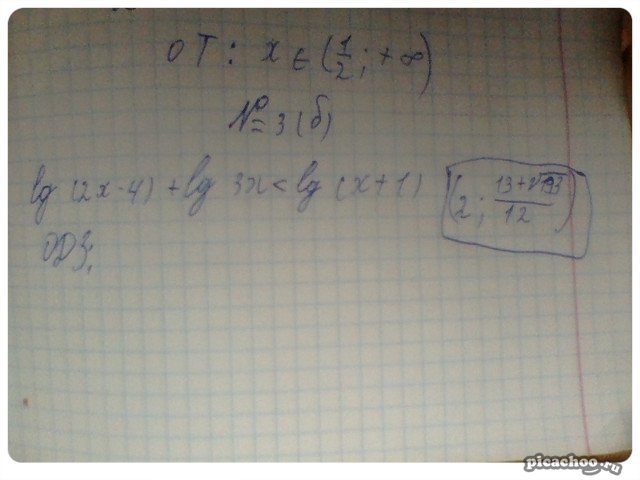 ОТ: x ∈ (1/2; +∞)
№3 (б)
lg (2x-4) + lg 3x < lg (x+1) (2; (13+√193)/12)
ОДЗ:
picachoo.ru